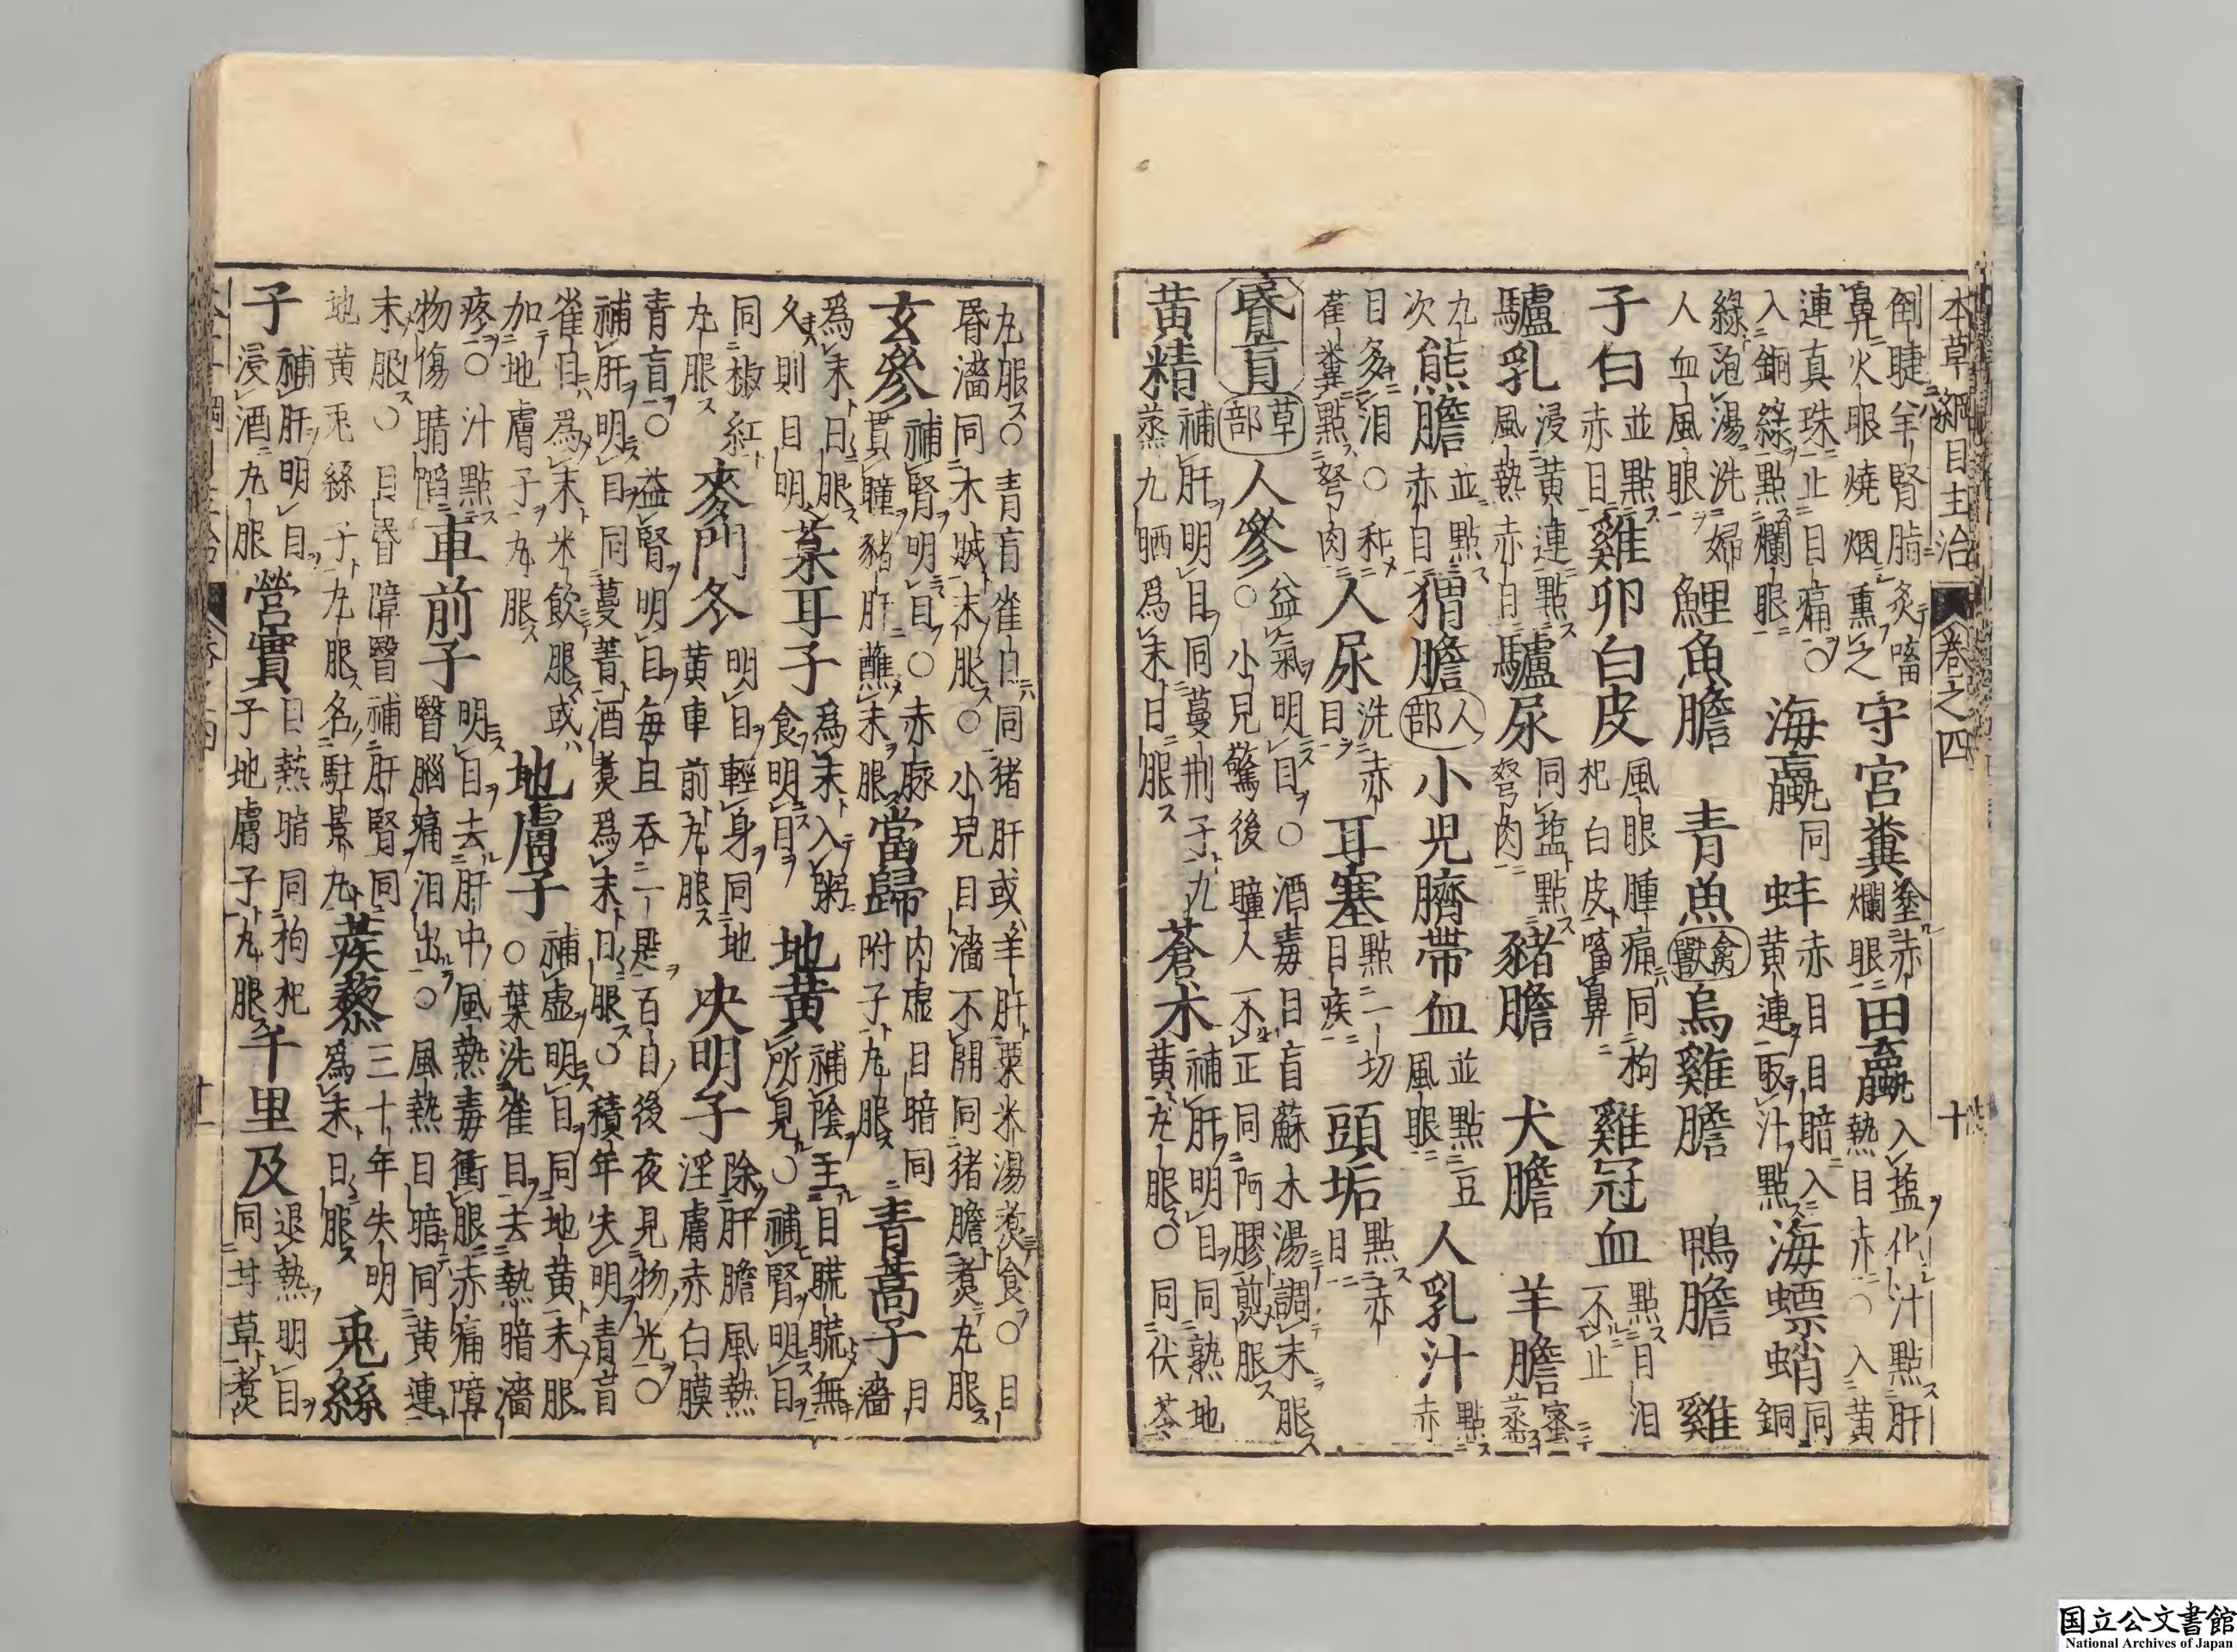 本草綱目主治 卷之四 十
倒睫羊腎脂炙㗜鼻火眼燒烟熏之守宮糞塗赤爛眼田蠃入塩化汁點肝熱目赤○入黃
連真珠止目痛○入銅綠點爛眼海蠃同蚌赤目目暗入黃連取汁點海螵蛸同銅
綠泡湯洗婦人血風眼鯉魚膽 青魚禽獸烏雞膽 鴨膽 雞
子白並點赤目雞卵白皮風眼腫痛同枸杞白皮㗜鼻雞冠血點目泪不止
驢乳浸黃連點風熱赤目驢尿同塩點弩肉豬膽 犬膽 羊膽蜜蒸
九次熊膽並點赤目猬膽人部小兒臍帶血並點豆風眼人乳汁點赤
目多泪○和雀糞點弩肉人尿洗赤目耳塞點一切目疾頭垢點赤目
昏盲草部人參益氣明目○酒毒目盲蘇木湯調末服○小兒驚後瞳人不正同阿膠煎服
黃精補肝明目同蔓荊子九蒸九晒為末日服蒼朮補肝明目同熟地黃丸服○同伏苓
丸服○青盲雀目同猪肝或羊肝粟米湯煮食○目昏濇同木賊末服○小兒目濇不開同猪膽煮丸服
玄參補腎明目○赤脉貫瞳豬肝蘸末服當歸内虛目暗同附子丸服青蒿子目濇
為末日服久則目明菜耳子為末入粥食明目地黃補陰主目䀮䀮無所見○補腎明目
同椒紅丸服麥門冬明目輕身同地黃車前丸服決明子除肝膽風熱淫膚赤白膜
青盲○益腎明目每旦吞一匙百日後夜見物光○補肝明目同蔓菁酒煮為末日服○積年失明青盲
雀目為末米飲服或加地膚子丸服地膚子補虛明目同地黃末服○葉洗雀目去熱暗濇
疼○汁點物傷睛陷車前子明目去肝中風熱毒衝眼赤痛障瞖腦痛泪出○風熱目暗同黃連
末服○目昏障瞖補肝腎同地黃兎絲子丸服名駐景丸蒺藜三十年失明為末日服兎絲
子補肝明目浸酒丸服營實目熱暗同枸杞子地膚子丸服千里及退熱明目同甘草煮
十一
国立公文書館
National Archives of Japan